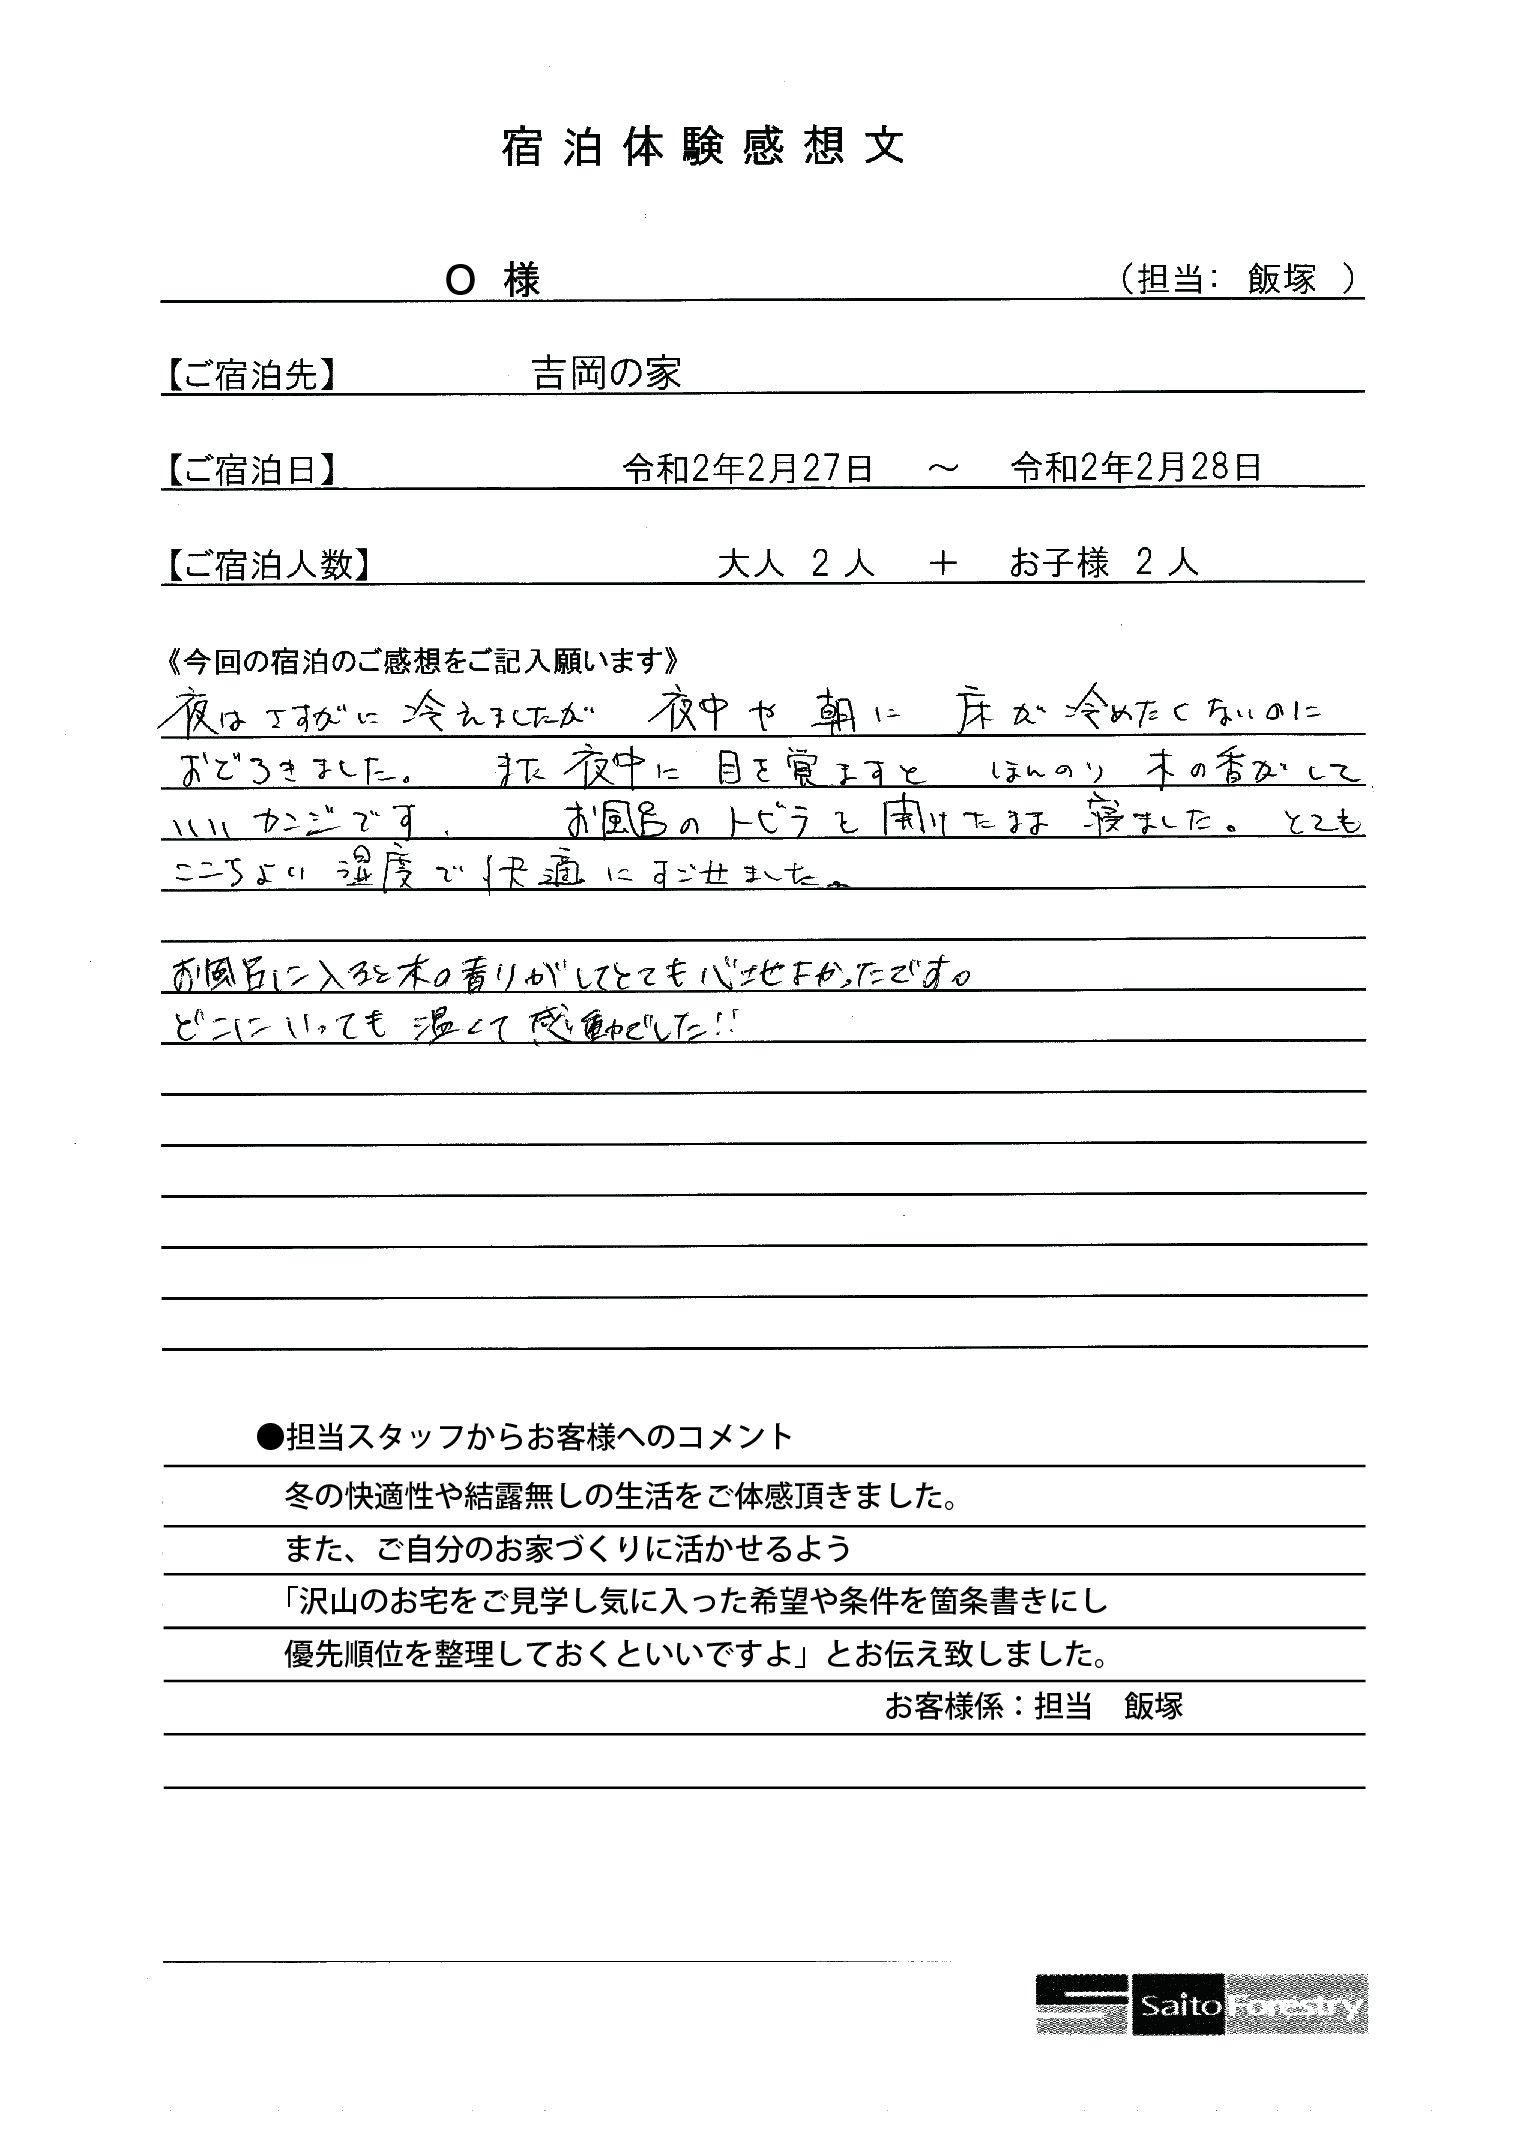 宿泊体験感想文
O 様 （担当： 飯塚 ）
【ご宿泊先】 吉岡の家
【ご宿泊日】 令和2年2月27日 ～ 令和2年2月28日
【ご宿泊人数】 大人 2 人 ＋ お子様 2 人
《今回の宿泊のご感想をご記入願います》
夜はさすがに冷えましたが 夜中や朝に 床が冷めたくないのに
おどろきました。 また夜中に目を覚ますと ほんのり 木の香がして
いいカンジです. お風呂のトビラを開けたまま寝ました。 とても
ここちよい湿度で快適にすごせました。
お風呂に入ると木の香りがしてとても心地よかったです。
どこにいっても温くて感動でした!!
●担当スタッフからお客様へのコメント
冬の快適性や結露無しの生活をご体感頂きました。
また、ご自分のお家づくりに活かせるよう
「沢山のお宅をご見学し気に入った希望や条件を箇条書きにし
優先順位を整理しておくといいですよ」とお伝え致しました。
お客様係：担当 飯塚
Saito Forestry